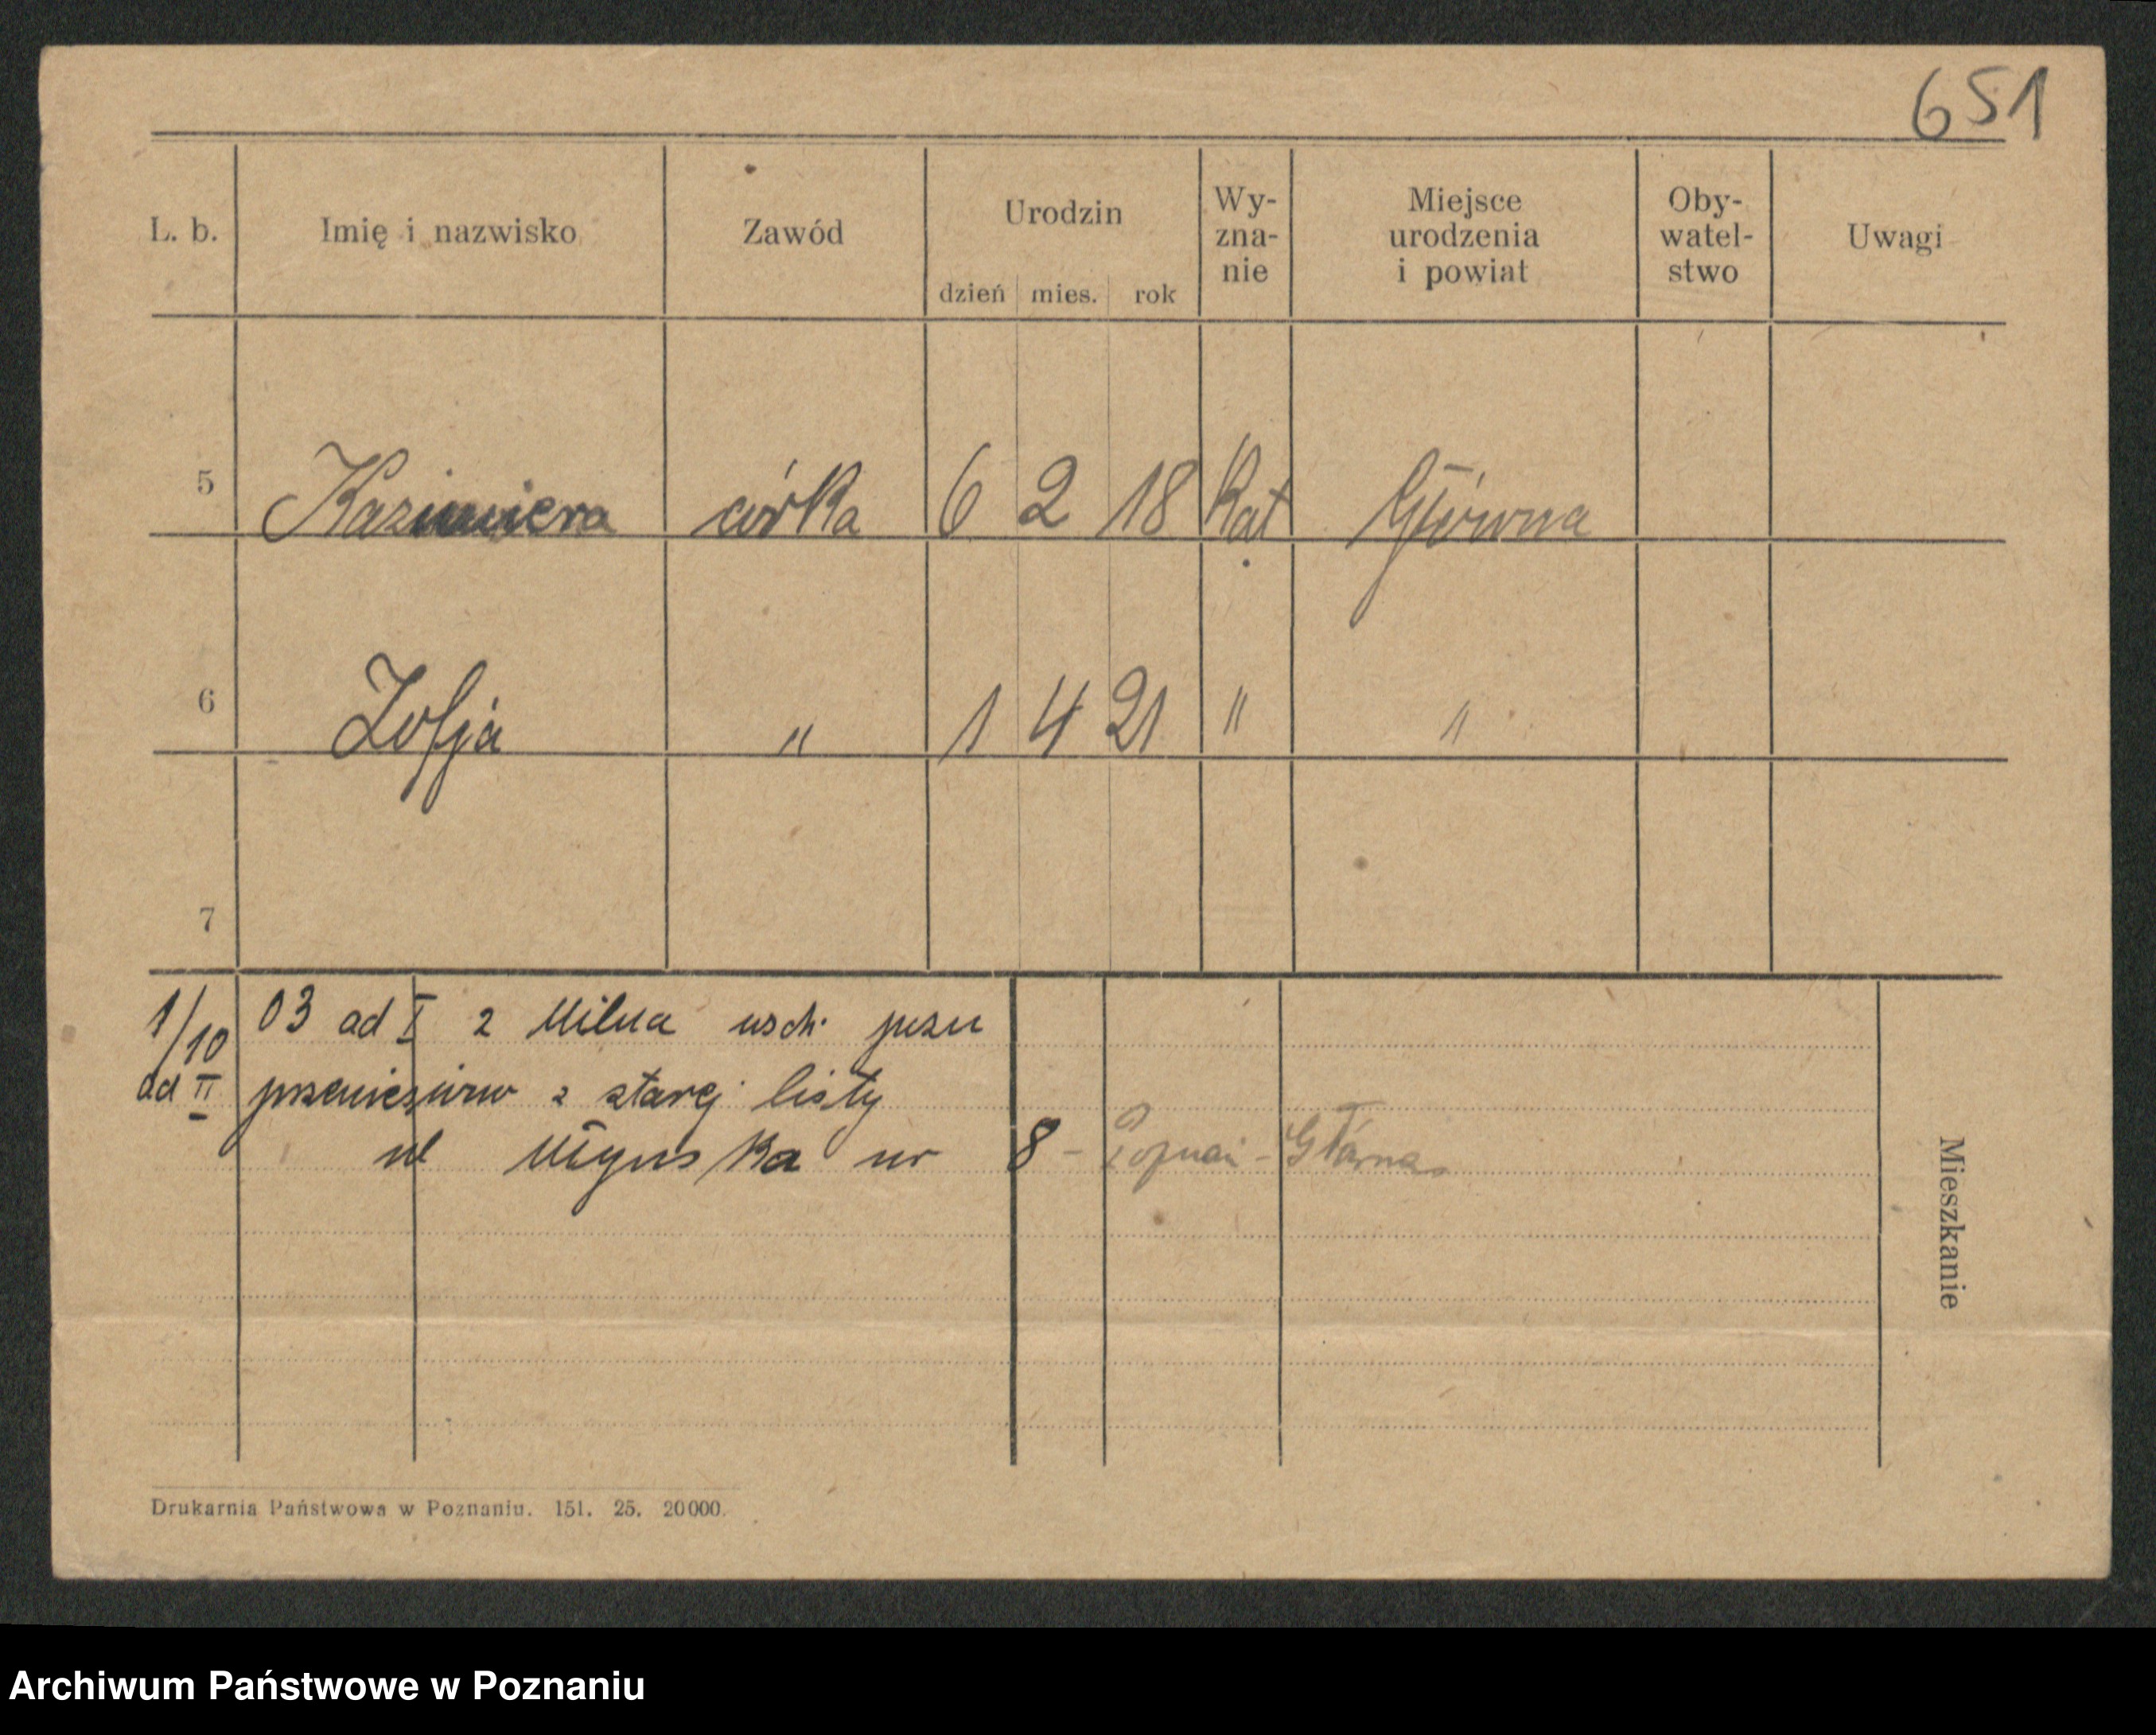 651
L. b. Imię i nazwisko Zawód Urodzin dzień mies. rok Wy- zna- nie Miejsce urodzenia i powiat Oby- watel- stwo Uwagi
5 Kazimiera córka 6 2 18 Kat Główna
6 Zofja " 1 4 21 " "
7
1/10 03 ad I z Milna
ad II z starej listy
ul Młyńska nr 8 - Poznań - Główna
Mieszkanie
Drukarnia Państwowa w Poznaniu. 151. 25. 20000.
Archiwum Państwowe w Poznaniu